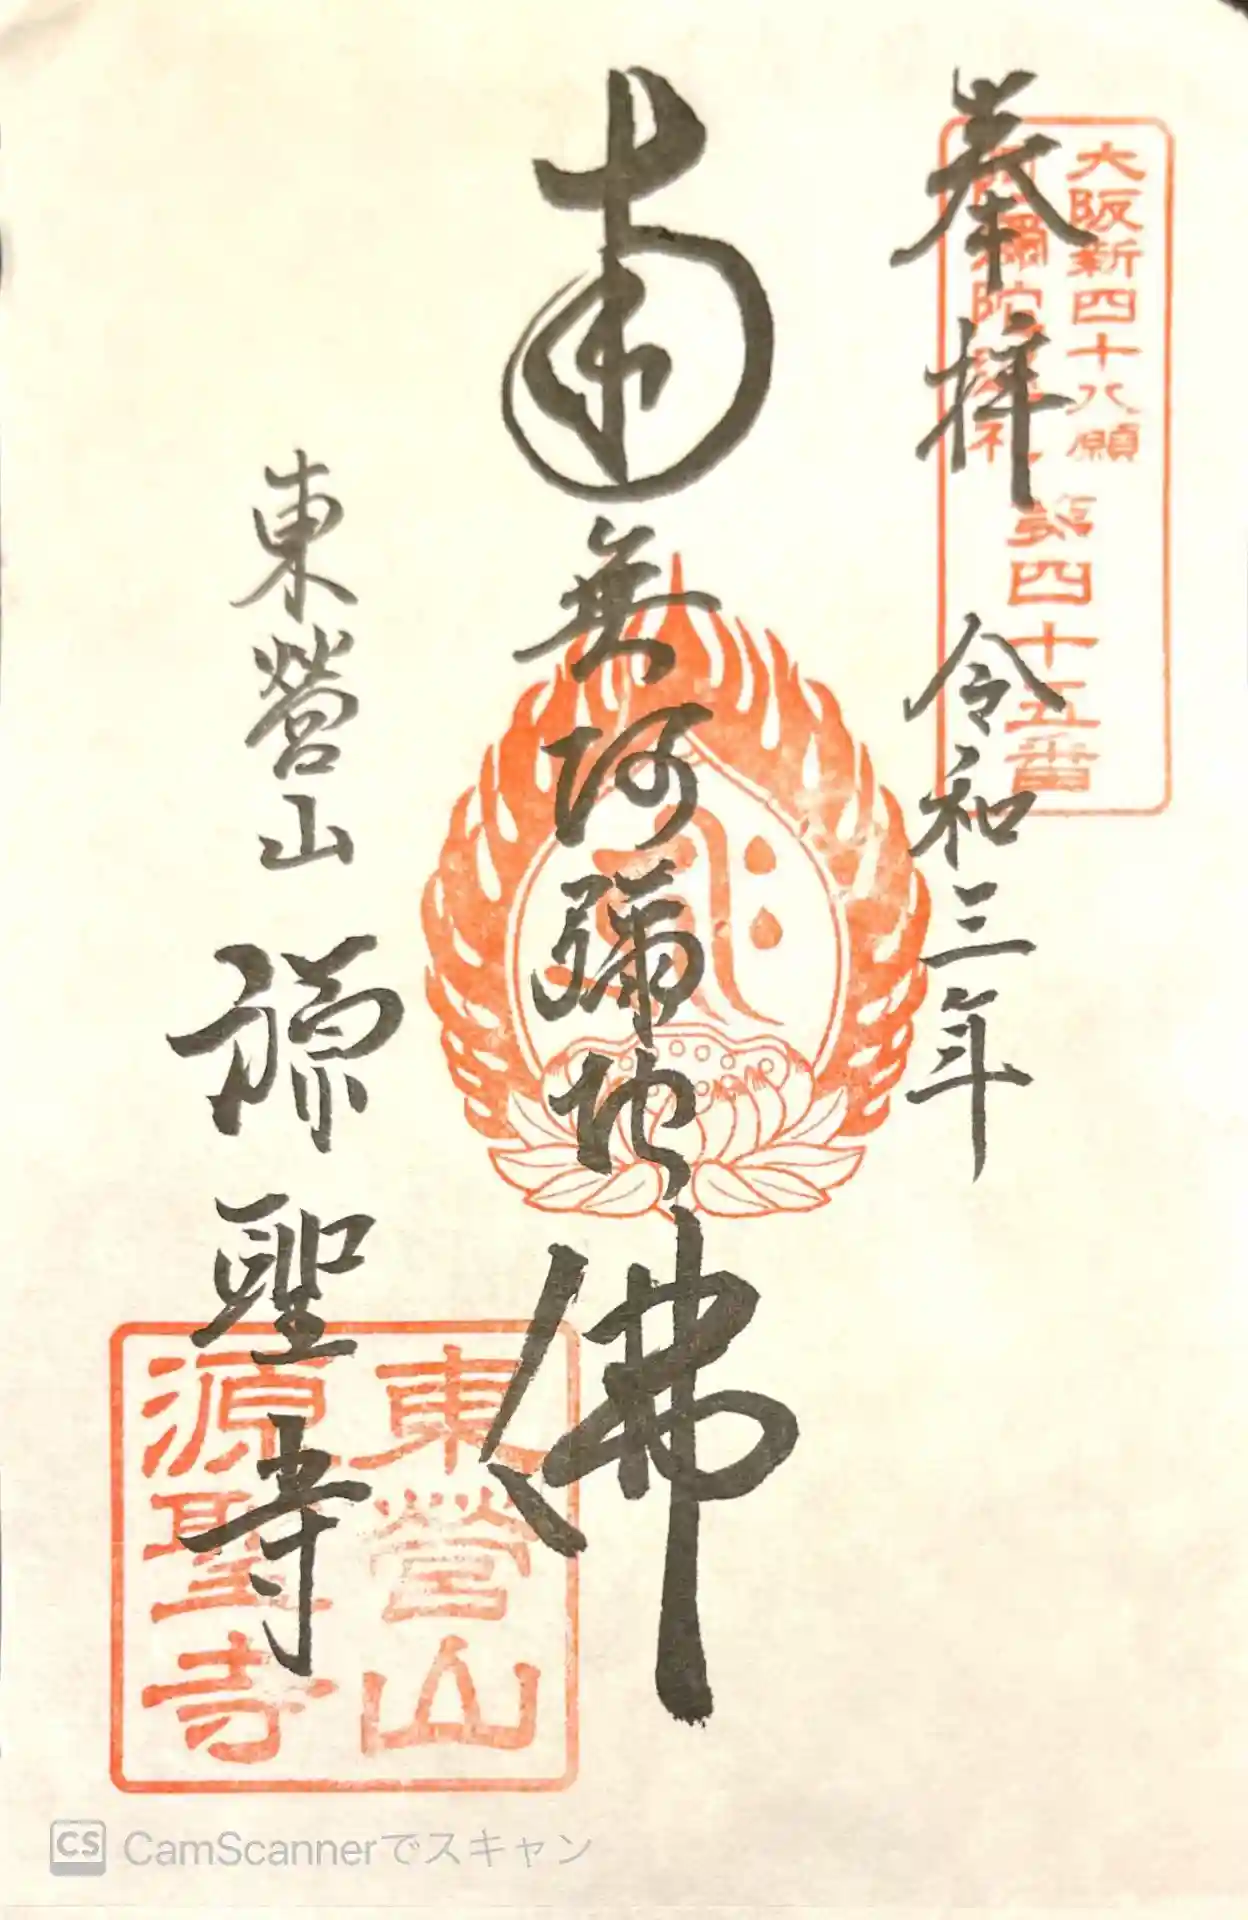 大阪新四十八願
阿彌陀巡礼
第四十五番
奉拝 令和三年
南無阿彌陀佛
東營山 源聖寺
東營山
源聖寺
CS CamScannerでスキャン